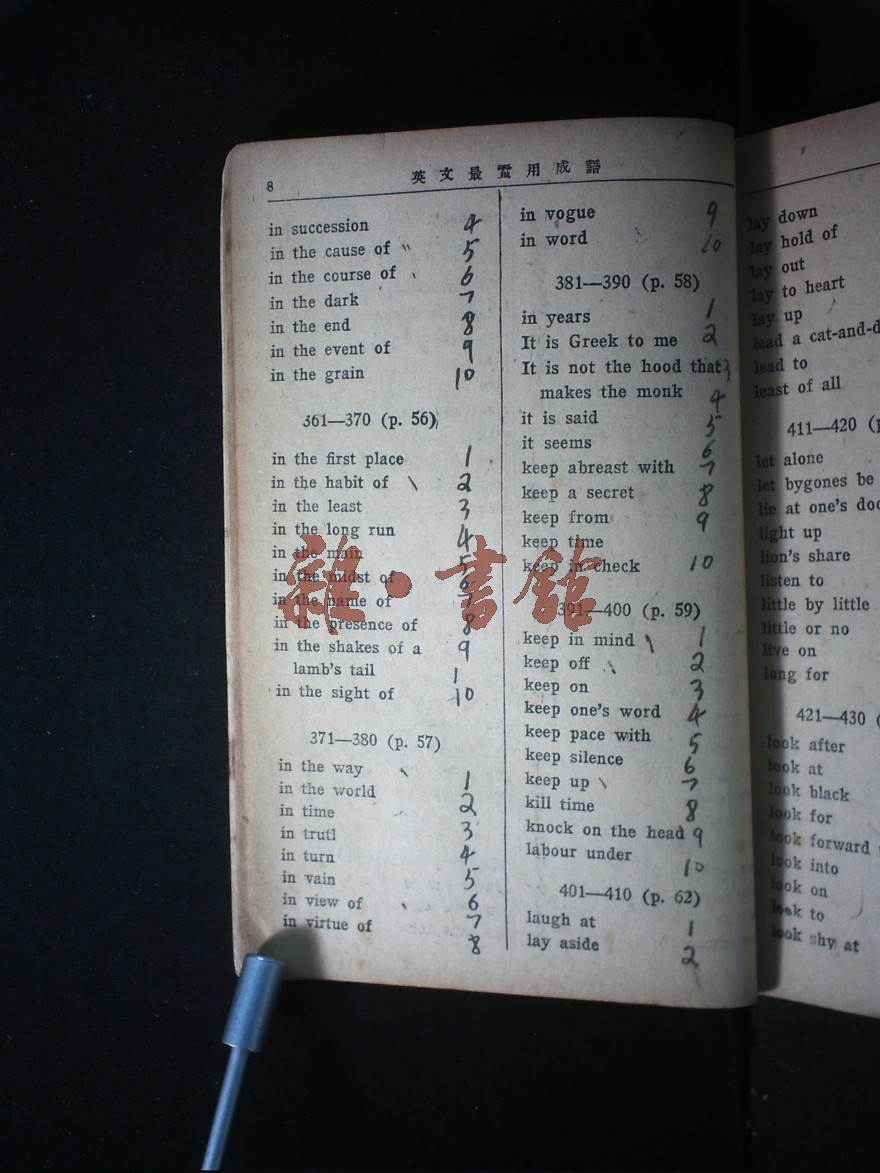 8
英文最常用成語
in succession 4
in the cause of 5
in the course of 6
in the dark 7
in the end 8
in the event of 9
in the grain 10
361—370 (p. 56)
in the first place 1
in the habit of 2
in the least 3
in the long run 4
in the main 5
in the midst of 6
in the name of 7
in the presence of 8
in the shakes of a 9
lamb's tail 1
in the sight of 10
371—380 (p. 57)
in the way
in the world 1
in time 2
in trutl 3
in turn 4
in vain 5
in view of 6
in virtue of 7
8
in vogue 9
in word 10
381—390 (p. 58)
in years 1
It is Greek to me 2
It is not the hood that 3
makes the monk 4
it is said 5
it seems 6
keep abreast with 7
keep a secret 8
keep from 9
keep time
keep in check 10
391—400 (p. 59)
keep in mind 1
keep off 2
keep on 3
keep one's word 4
keep pace with 5
keep silence 6
keep up 7
kill time 8
knock on the head 9
labour under 10
401—410 (p. 62)
laugh at 1
lay aside 2
lay down
lay hold of
lay out
lay to heart
lay up
lead a cat-and-d
lead to
least of all
411—420 (p
let alone
let bygones be
lie at one's doo
light up
lion's share
listen to
little by little
little or no
live on
long for
421—430 (
look after
look at
look black
look for
look forward
look into
look on
look to
look shy at
雜·書館